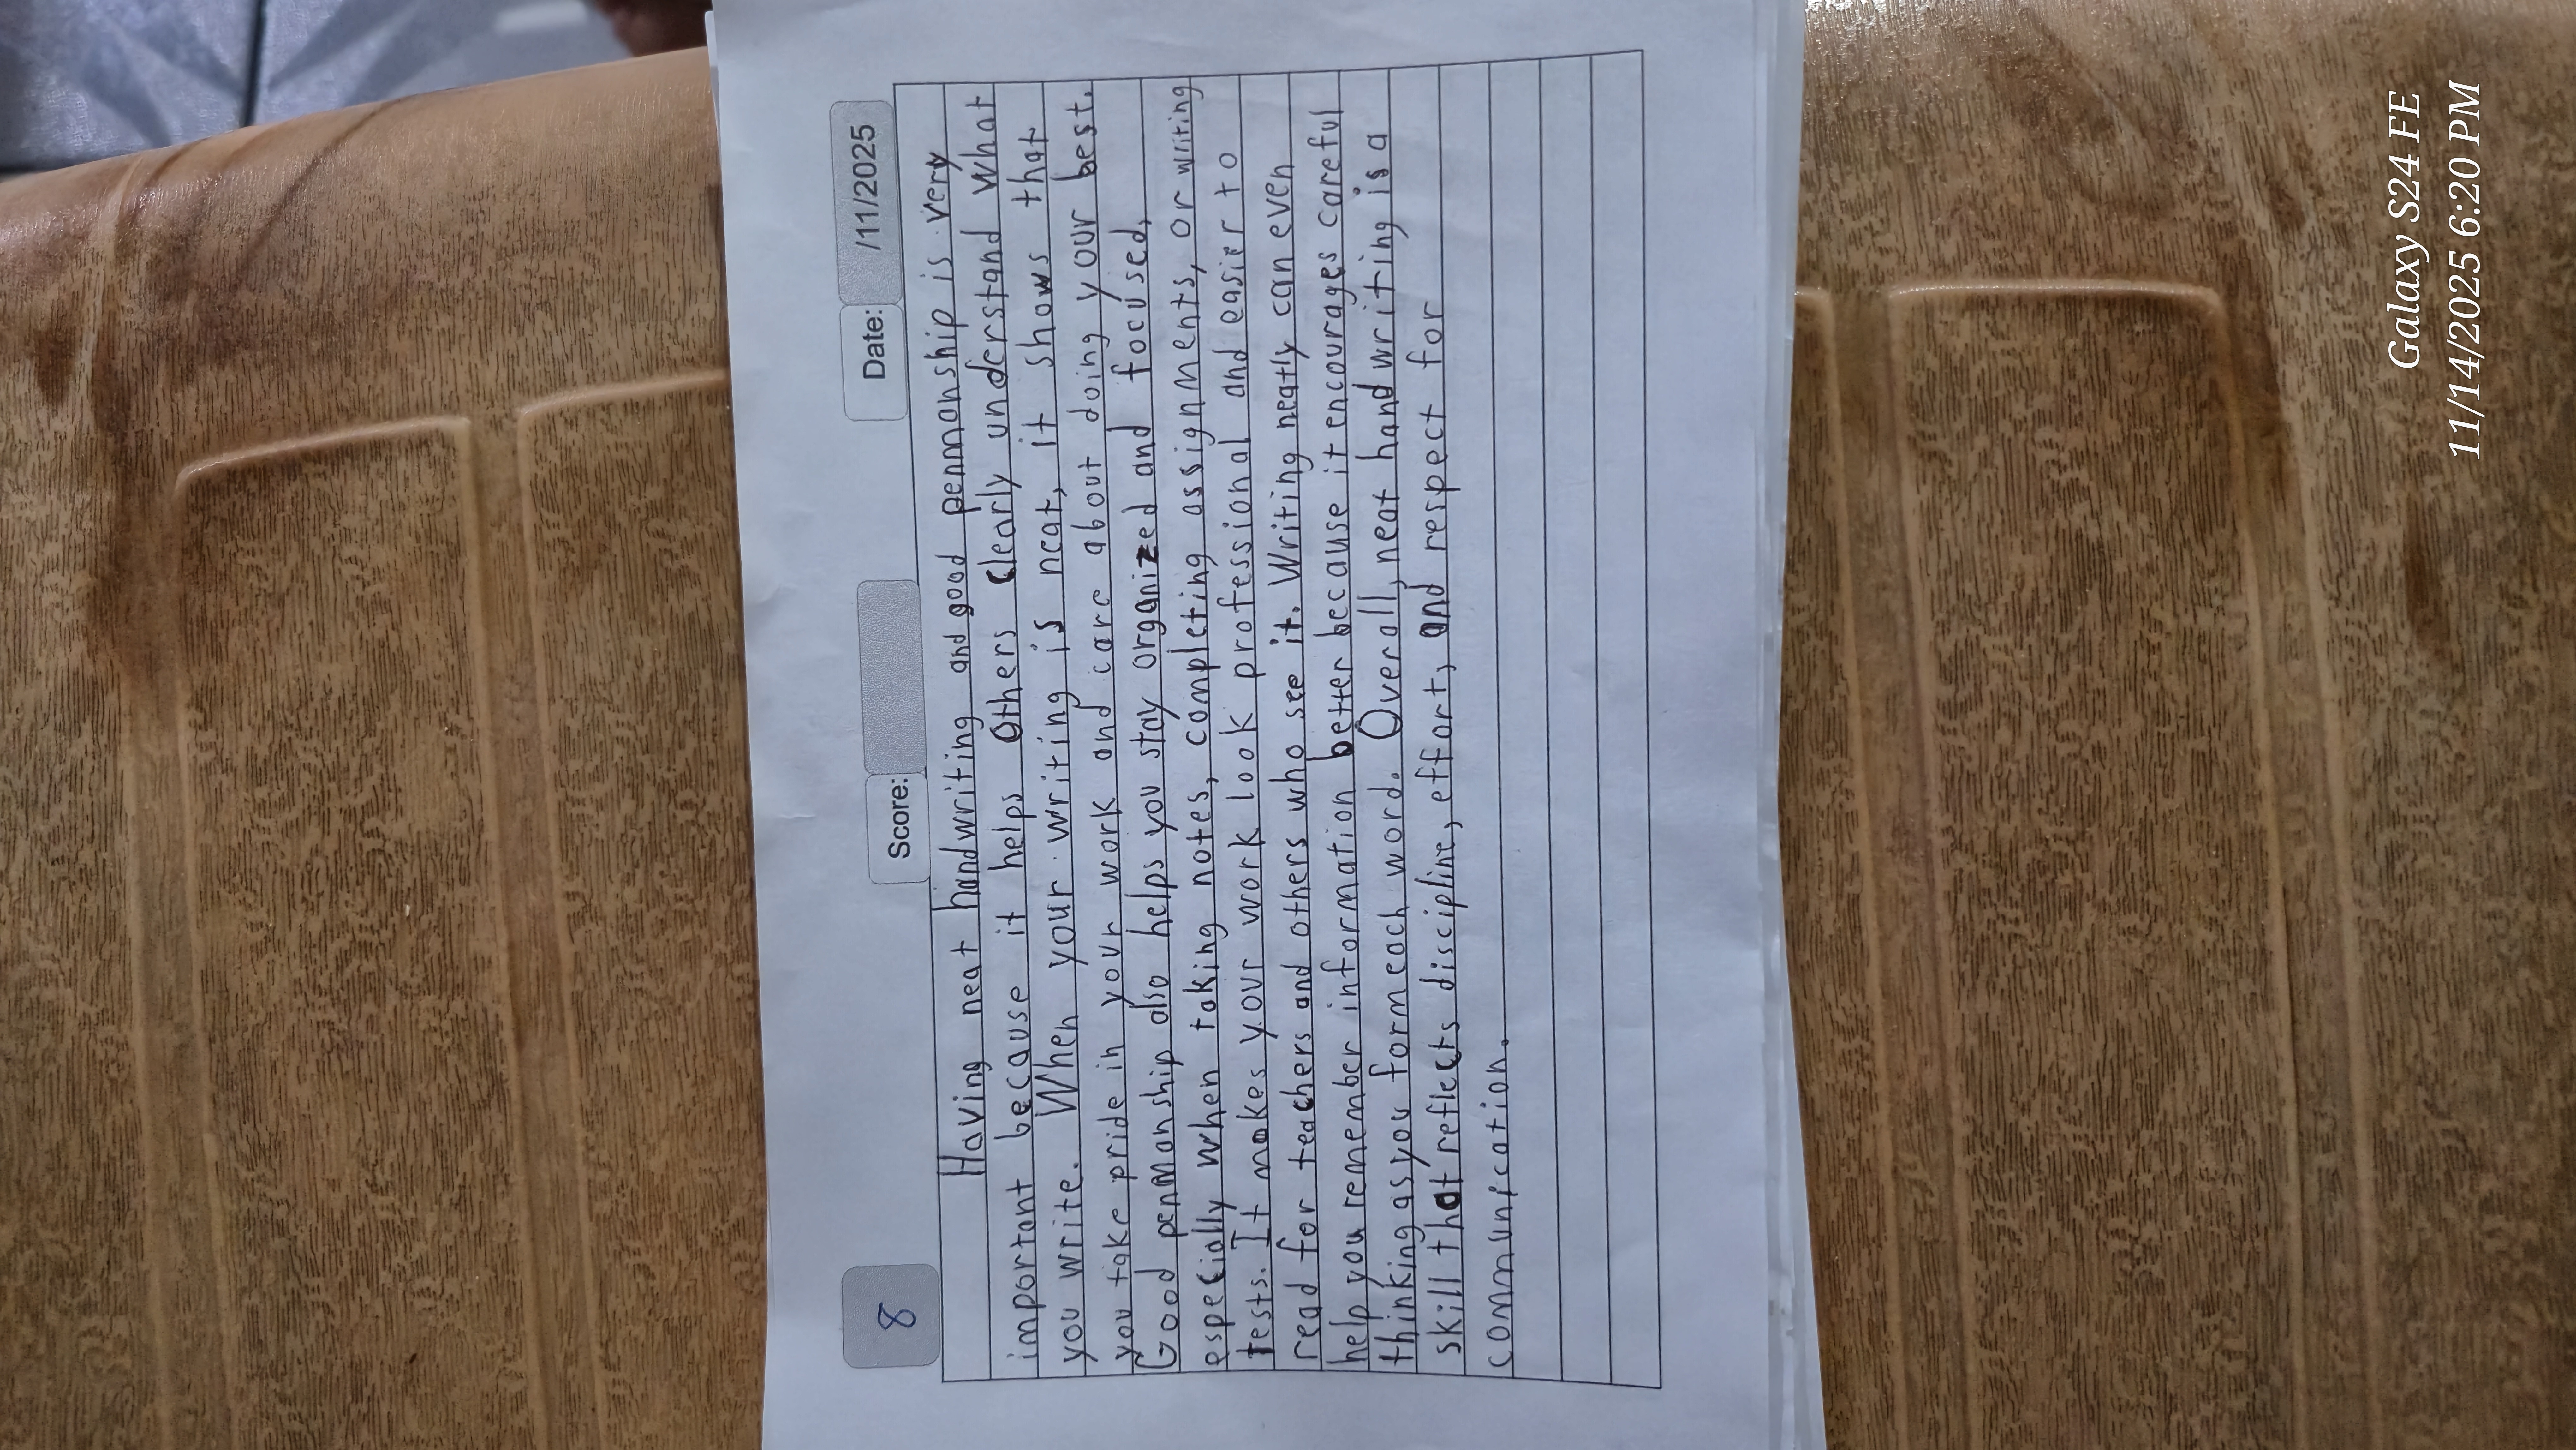 8
Score:
Date: /11/2025
Having neat handwriting and good penmanship is very
important because it helps others clearly understand what
you write. When your writing is neat, it shows that
you take pride in your work and care about doing your best.
Good penmanship also helps you stay organized and focused,
especially when taking notes, completing assignments, or writing
tests. It makes your work look professional and easier to
read for teachers and others who see it. Writing neatly can even
help you remember information better because it encourages careful
thinking as you form each word. Overall, neat handwriting is a
skill that reflects discipline, effort, and respect for
communication.
Galaxy S24 FE
11/14/2025 6:20 PM